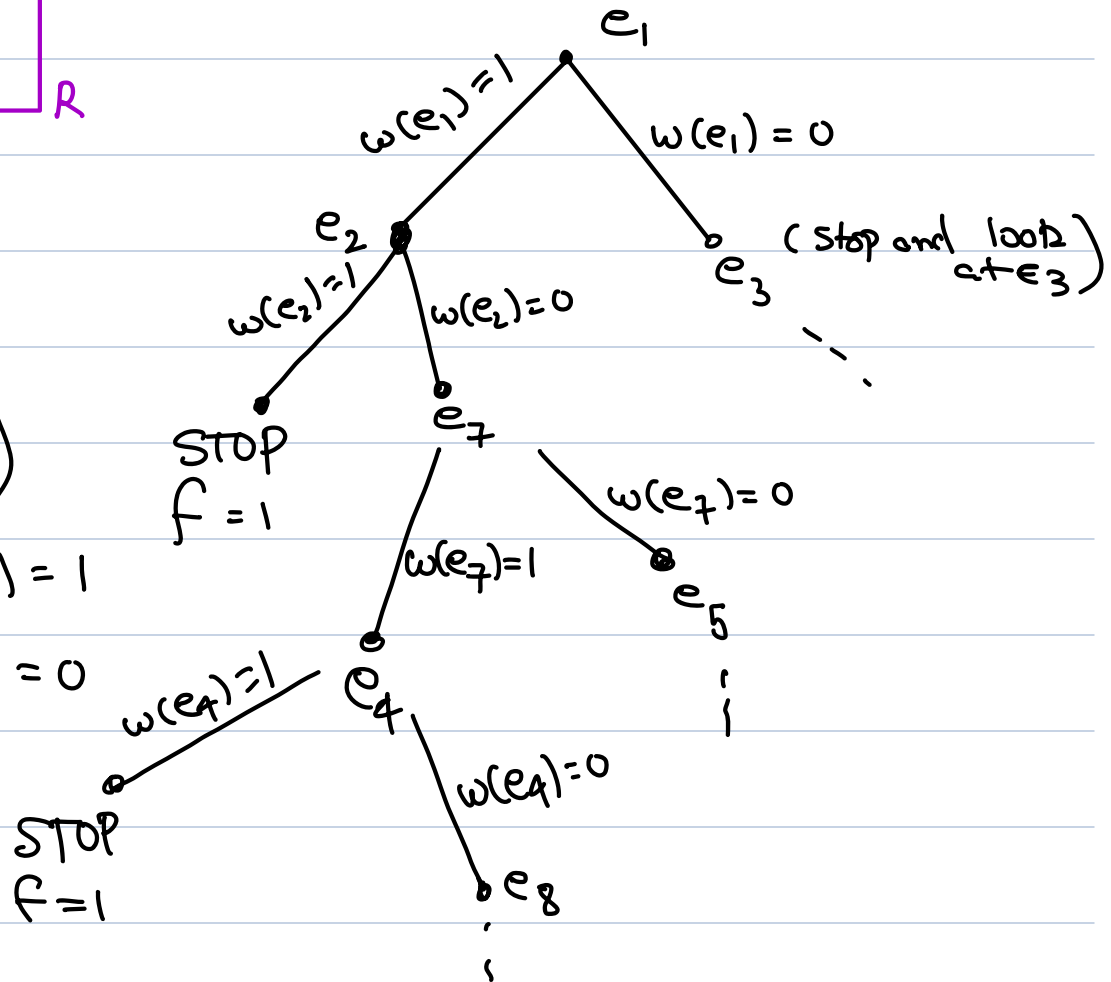 e₁
R
ω(e₁)=1
ω(e₁) = 0
e₂
e₃
(stop and look
at e₃)
ω(e₂)=1
ω(e₂)=0
STOP
f = 1
e₇
ω(e₇)=0
ω(e₇)=1
) = 1
e₅
= 0
ω(e₄)=1
e₄
ω(e₄)=0
STOP
f = 1
e₈